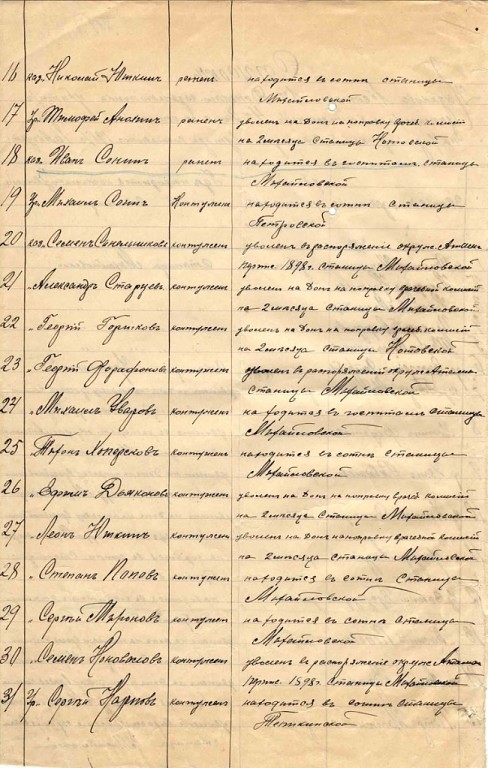 16 каз. Николай Юткинъ раненъ находится въ сотнѣ станицы
Михайловской
17 Ур. Тимофей Ананьинъ раненъ уволенъ на Донъ на поправку
на 2 мѣсяца станица Котовской
18 каз. Иванъ Сонинъ раненъ находится въ госпиталѣ станицы
Михайловской
19 Ур. Михаилъ контуженъ находится въ сотнѣ станицы
Петровской
20 каз. Семенъ Синельниковъ контуженъ уволенъ въ распоряженіе окруж. Атамана
1898 г. станицы Михайловской
21 „ Александръ Старцевъ контуженъ уволенъ на Донъ на поправку
на 2 мѣсяца станицы Михайловской
22 „ Георгій контуженъ уволенъ на Донъ на поправку
на 2 мѣсяца станица Котовской
23 „ Георгій Фарафоновъ контуженъ уволенъ въ распоряженіе окруж. Атамана
станицы Михайловской
24 „ Михаилъ Уваровъ контуженъ находится въ госпиталѣ станицы
Михайловской
25 „ Хоперсковъ контуженъ находится въ сотнѣ станицы
Михайловской
26 „ Ефимъ контуженъ уволенъ на Донъ на поправку
на 2 мѣсяца станицы Михайловской
27 „ Леонъ Юткинъ контуженъ уволенъ на Донъ на поправку
на 2 мѣсяца станицы Михайловской
28 „ Степанъ Поповъ контуженъ находится въ сотнѣ станицы
Михайловской
29 „ Сергѣй Мироновъ контуженъ находится въ сотнѣ станицы
Михайловской
30 „ Семенъ Коноваловъ контуженъ уволенъ въ распоряженіе окруж. Атамана
1898 г. станицы Михайловской
31 Ур. Сергѣй Карповъ контуженъ находится въ сотнѣ станицы
Тепикинской